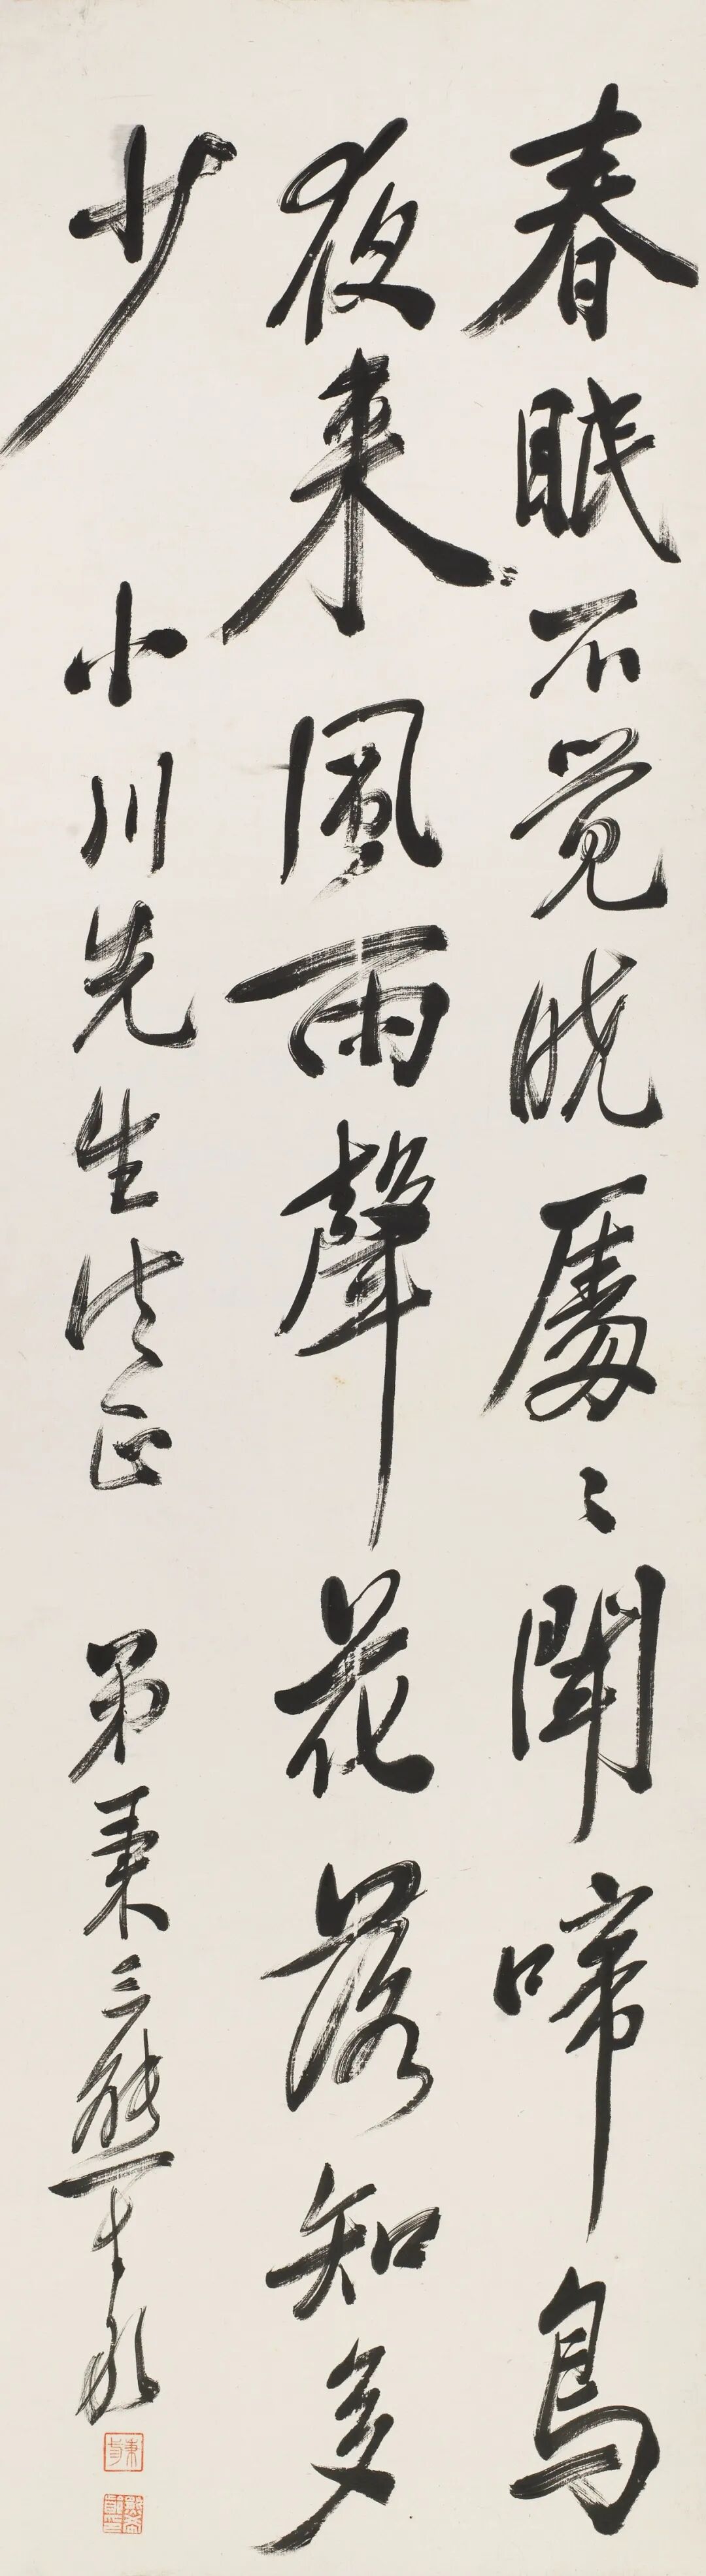 春眠不覺曉處々聞啼鳥
夜來風雨聲花落知多
少 小川先生法正 弟秉三熊希齡